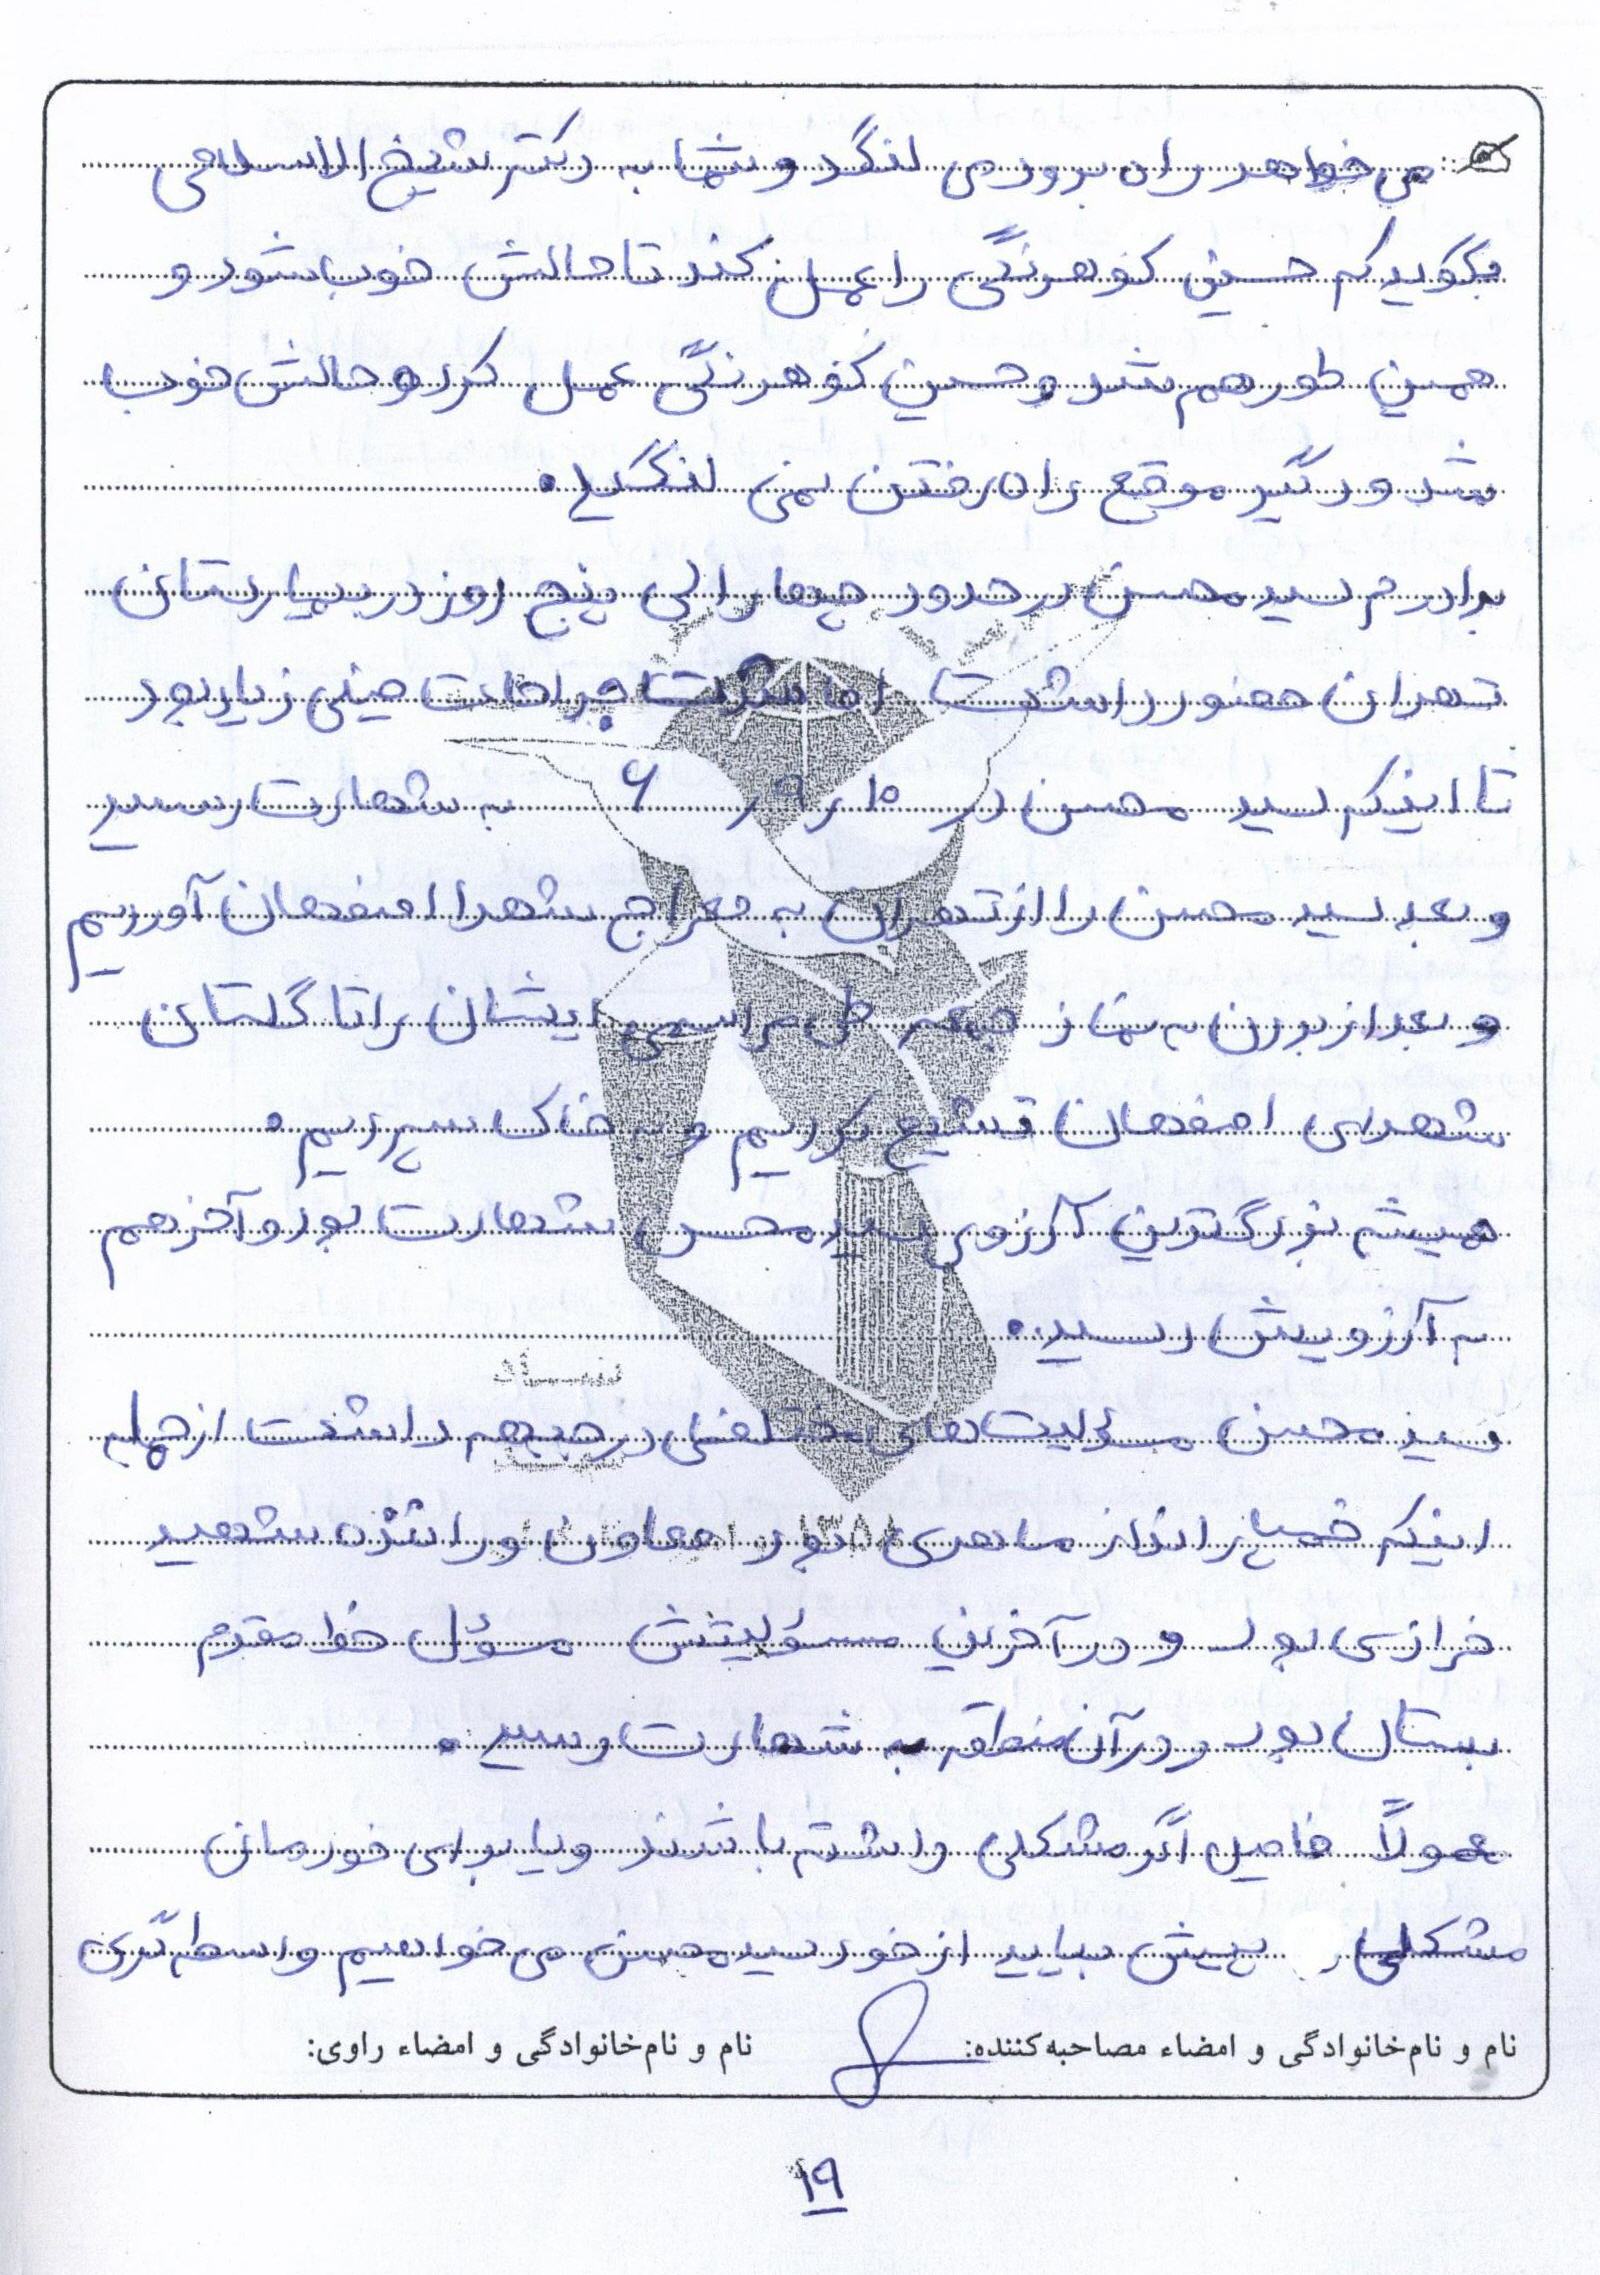 می خواهد راه برود می لنگد و شما به دکتر شیخ الاسلامی
بگویید که حسین کوهرنگی را عمل کند تا حالش خوب شود و
همین طور هم شد و حسین کوهرنگی عمل کرد و حالش خوب
شد و دیگر موقع راه رفتن نمی لنگید.
برادرم سید محسن در حدود چهار الی پنج روز در بیمارستان
تهران حضور داشت اما شدت جراحات خیلی زیاد بود
تا اینکه سید محسن در ۱۰ ر ۹ ر ۶ به شهادت رسید
و بعد سید محسن را از تهران به معراج شهدا اصفهان آوردیم
و بعد از بردن به نماز جمعه طی مراسمی ایشان را تا گلستان
شهدای اصفهان تشیع کردیم و به خاک سپردیم.
همیشه بزرگترین آرزوی سید محسن شهادت بود و آخر هم
به آرزویش رسید.
سید محسن مسؤلیت های مختلفی در جبهه داشت از جمله
اینکه خمپاره انداز ماهری بود معاون و راننده شهید
خرازی بود و در آخرین مسئولیتش مسؤل خط مقدم
بستان بود و در آن منطقه به شهادت رسید.
عمولاً فامیل اگر مشکلی داشته باشند و یا برای خودمان
مشکلی پیش بیاید از خود سید محسن می خواهیم واسطه گری
نام و نام‌خانوادگی و امضاء مصاحبه‌کننده: نام و نام‌خانوادگی و امضاء راوی:
۱۹